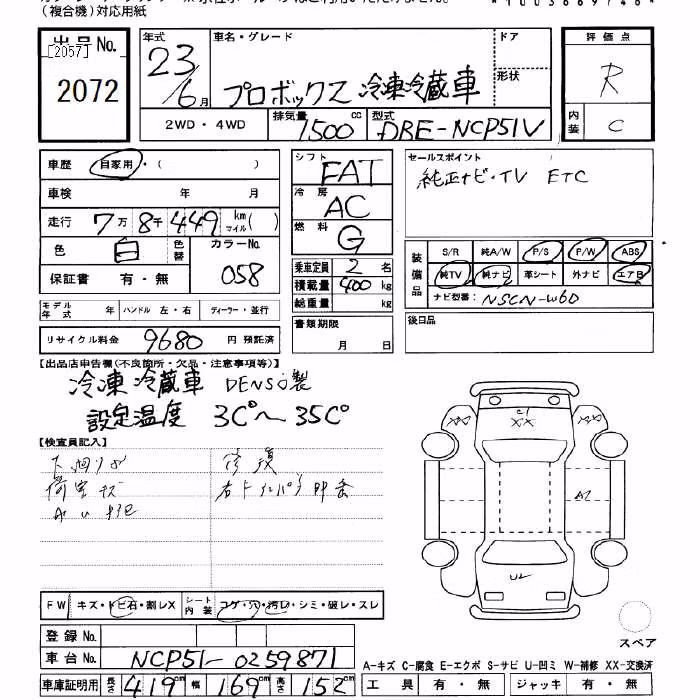 (複合機)対応用紙
*1003669746*
出品No.
[2057]
2072
年式 23/6月
車名・グレード
プロボックス 冷凍冷蔵車
ドア
形状
評価点
R
内装 C
2WD・4WD
排気量 1500cc
型式 DBE-NCP51V
車歴 自家用・( )
車検 年 月
走行 7万8千449km マイル( )
色 白 色替 カラーNo. 058
保証書 有・無
シフト FAT
冷房 AC
燃料 G
乗車定員 2名
積載量 400kg
総重量 kg
セールスポイント
純正ナビ・TV ETC
装備品
S/R 純A/W P/S P/W ABS
純TV 純ナビ 革シート 外ナビ エアB
ナビ型番: NSCN-W60
モデル年式 年 ハンドル 左・右 ディーラー・並行
書類期限
月 日
後日品
リサイクル料金 9680 円 預託済
【出品店申告欄(不良箇所・欠品・注意事項等)】
冷凍冷蔵車 DENSO製
設定温度 3C°~35C°
【検査員記入】
荷室キズ
修復
XX
A2
FW キズ・トビ石・割レX シート内装 コゲ・穴・汚レ・シミ・破レ・スレ
登録No.
車台No. NCP51-0259871
車庫証明用 長さ 419cm 幅 169cm 高さ 152cm
スペア
A-キズ C-腐食 E-エクボ S-サビ U-凹ミ W-補修 XX-交換済
工具 有・無 ジャッキ 有・無